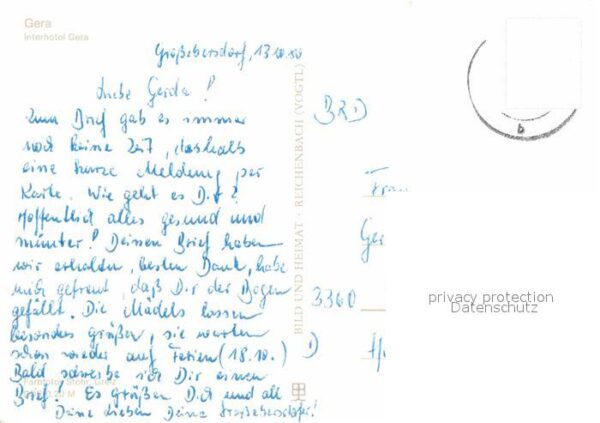 Gera
Interhotel Gera
Großebersdorf, 13.10.80
Liebe Gerda!
Zum Brief gab es immer
noch keine Zeit, deshalb
eine kurze Meldung per
Karte. Wie geht es Dir?
Hoffentlich alles gesund und
munter! Deinen Brief haben
wir erhalten, besten Dank, habe
mich gefreut, daß Dir der Bogen
gefällt. Die Mädels lassen
besonders grüßen, sie warten
schon wieder auf Ferien (18.10.)
Bald schreibe ich Dir einen
Brief! Es grüßen Dich und all
Deine Lieben Deine Großebersdorfer!
Farbfoto: Stöhr, Greiz
0,20 M
BILD UND HEIMAT · REICHENBACH (VOGTL)
BRD
Frau
Ger
3360
D
b
privacy protection
Datenschutz